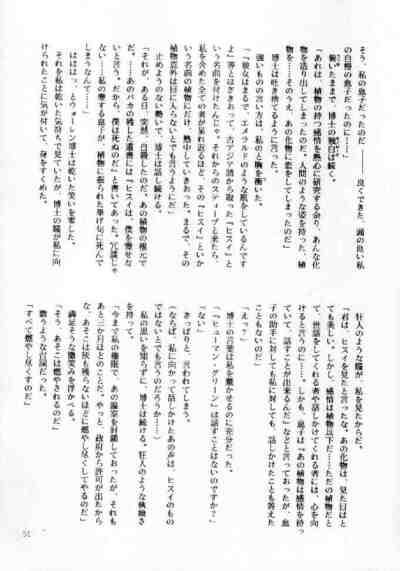 そう、私の息子だったのだ……――良くできた、頭の良い私
の自慢の息子だったのに……」
俯いたままで、博士の独白は続く。
「あれは、植物の持つ感情を熱心に研究する余り、あんな化
物を造り出してしまったのだ。人間のような姿を持った、植
物を……そのうえ、あの化物に恋をしてしまったのだ」
博士は吐き捨てるように言った。
強いもの言い方は、私の胸を衝いた。
「『彼女はまるで、エメラルドのような肌をしているんです
よ』等とほざきおって、古アジア語から取った『ヒスイ』と
いう名前を付けたんじゃ。それからのスティーブと来たら、
私を含めた全ての者が呆れ返るほど、その『ヒスイ』とい
う名前の植物にだけ、熱中していきおった。まるで、その
植物意外は目に入らないとでも言うようにだ」
止めようのない勢いで、博士は話し続ける。
「それが、ある日、突然、自殺したのだ。あの植物の根元で
な……あのバカの残した遺書には『ヒスイは、僕を愛せな
いと言う。だから、僕は死ぬのだ』と書いてあった。冗談じゃ
ない……私の愛する息子が、植物に振られた挙げ句に死んで
しまうなんて……」
ははは……とウォーレン博士は乾いた笑いを発した。
それを私は乾いた気持ちで見ていたが、博士の瞳が私に向
けられたことに気が付いて、身をすくめた。
狂人のような瞳が、私を見たからだ。
「君は、ヒスイを見たと言ったな。あの化物は、見た目はと
ても美しい。しかし、感情は植物以下だ……ただの植物だと
て、世話をしてくれる者や話しかけてくれる者には、心を向
けると言うのに……。しかも、息子は『あの植物は感情を持っ
ていて、話すことが出来るんだ』などと言っておったが、息
子の助手に対しても私に対しても、話しかけたことも答えた
こともないのだ」
「えっ？」
博士の言葉は私を驚かせるのに充分だった。
「『ヒューマン・グリーン』は話すことはないのですか？」
「ない」
きっぱりと、言われてしまう。
（ならば、私に向かって話しかけたあの声は、ヒスイのもの
ではないとでも言うのだろうか……）
私の思いを知らずに、博士は続ける。狂人のような執拗さ
を持って。
「今まで私の権限で、あの温室を封鎖しておったが、それも
あと三カ月ほどのことだ。やっと、政府から許可が出たから
な、あそこは灰も残らないほどに燃やし尽くしてやるのだ」
満足そうな微笑みを浮かべた。
「そう、あそこは燃やされるのだ」
歌うような台詞だった。
「すべて燃やし尽くすのだ」
51